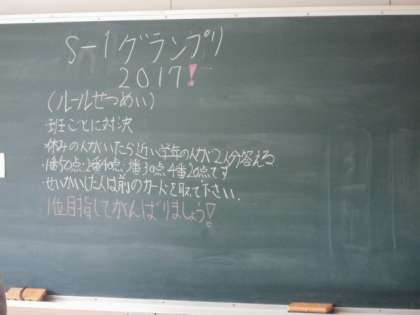 S-1グランプリ
2017!
(ルールせつめい)
・班ごとに対決
・休みの人がいたら近い学年の人が2人分答える
・1番50点、2番40点、3番30点、4番20点です
・せいかいした人は前のカードを取って下さい.
1位目指してがんばりましょう!